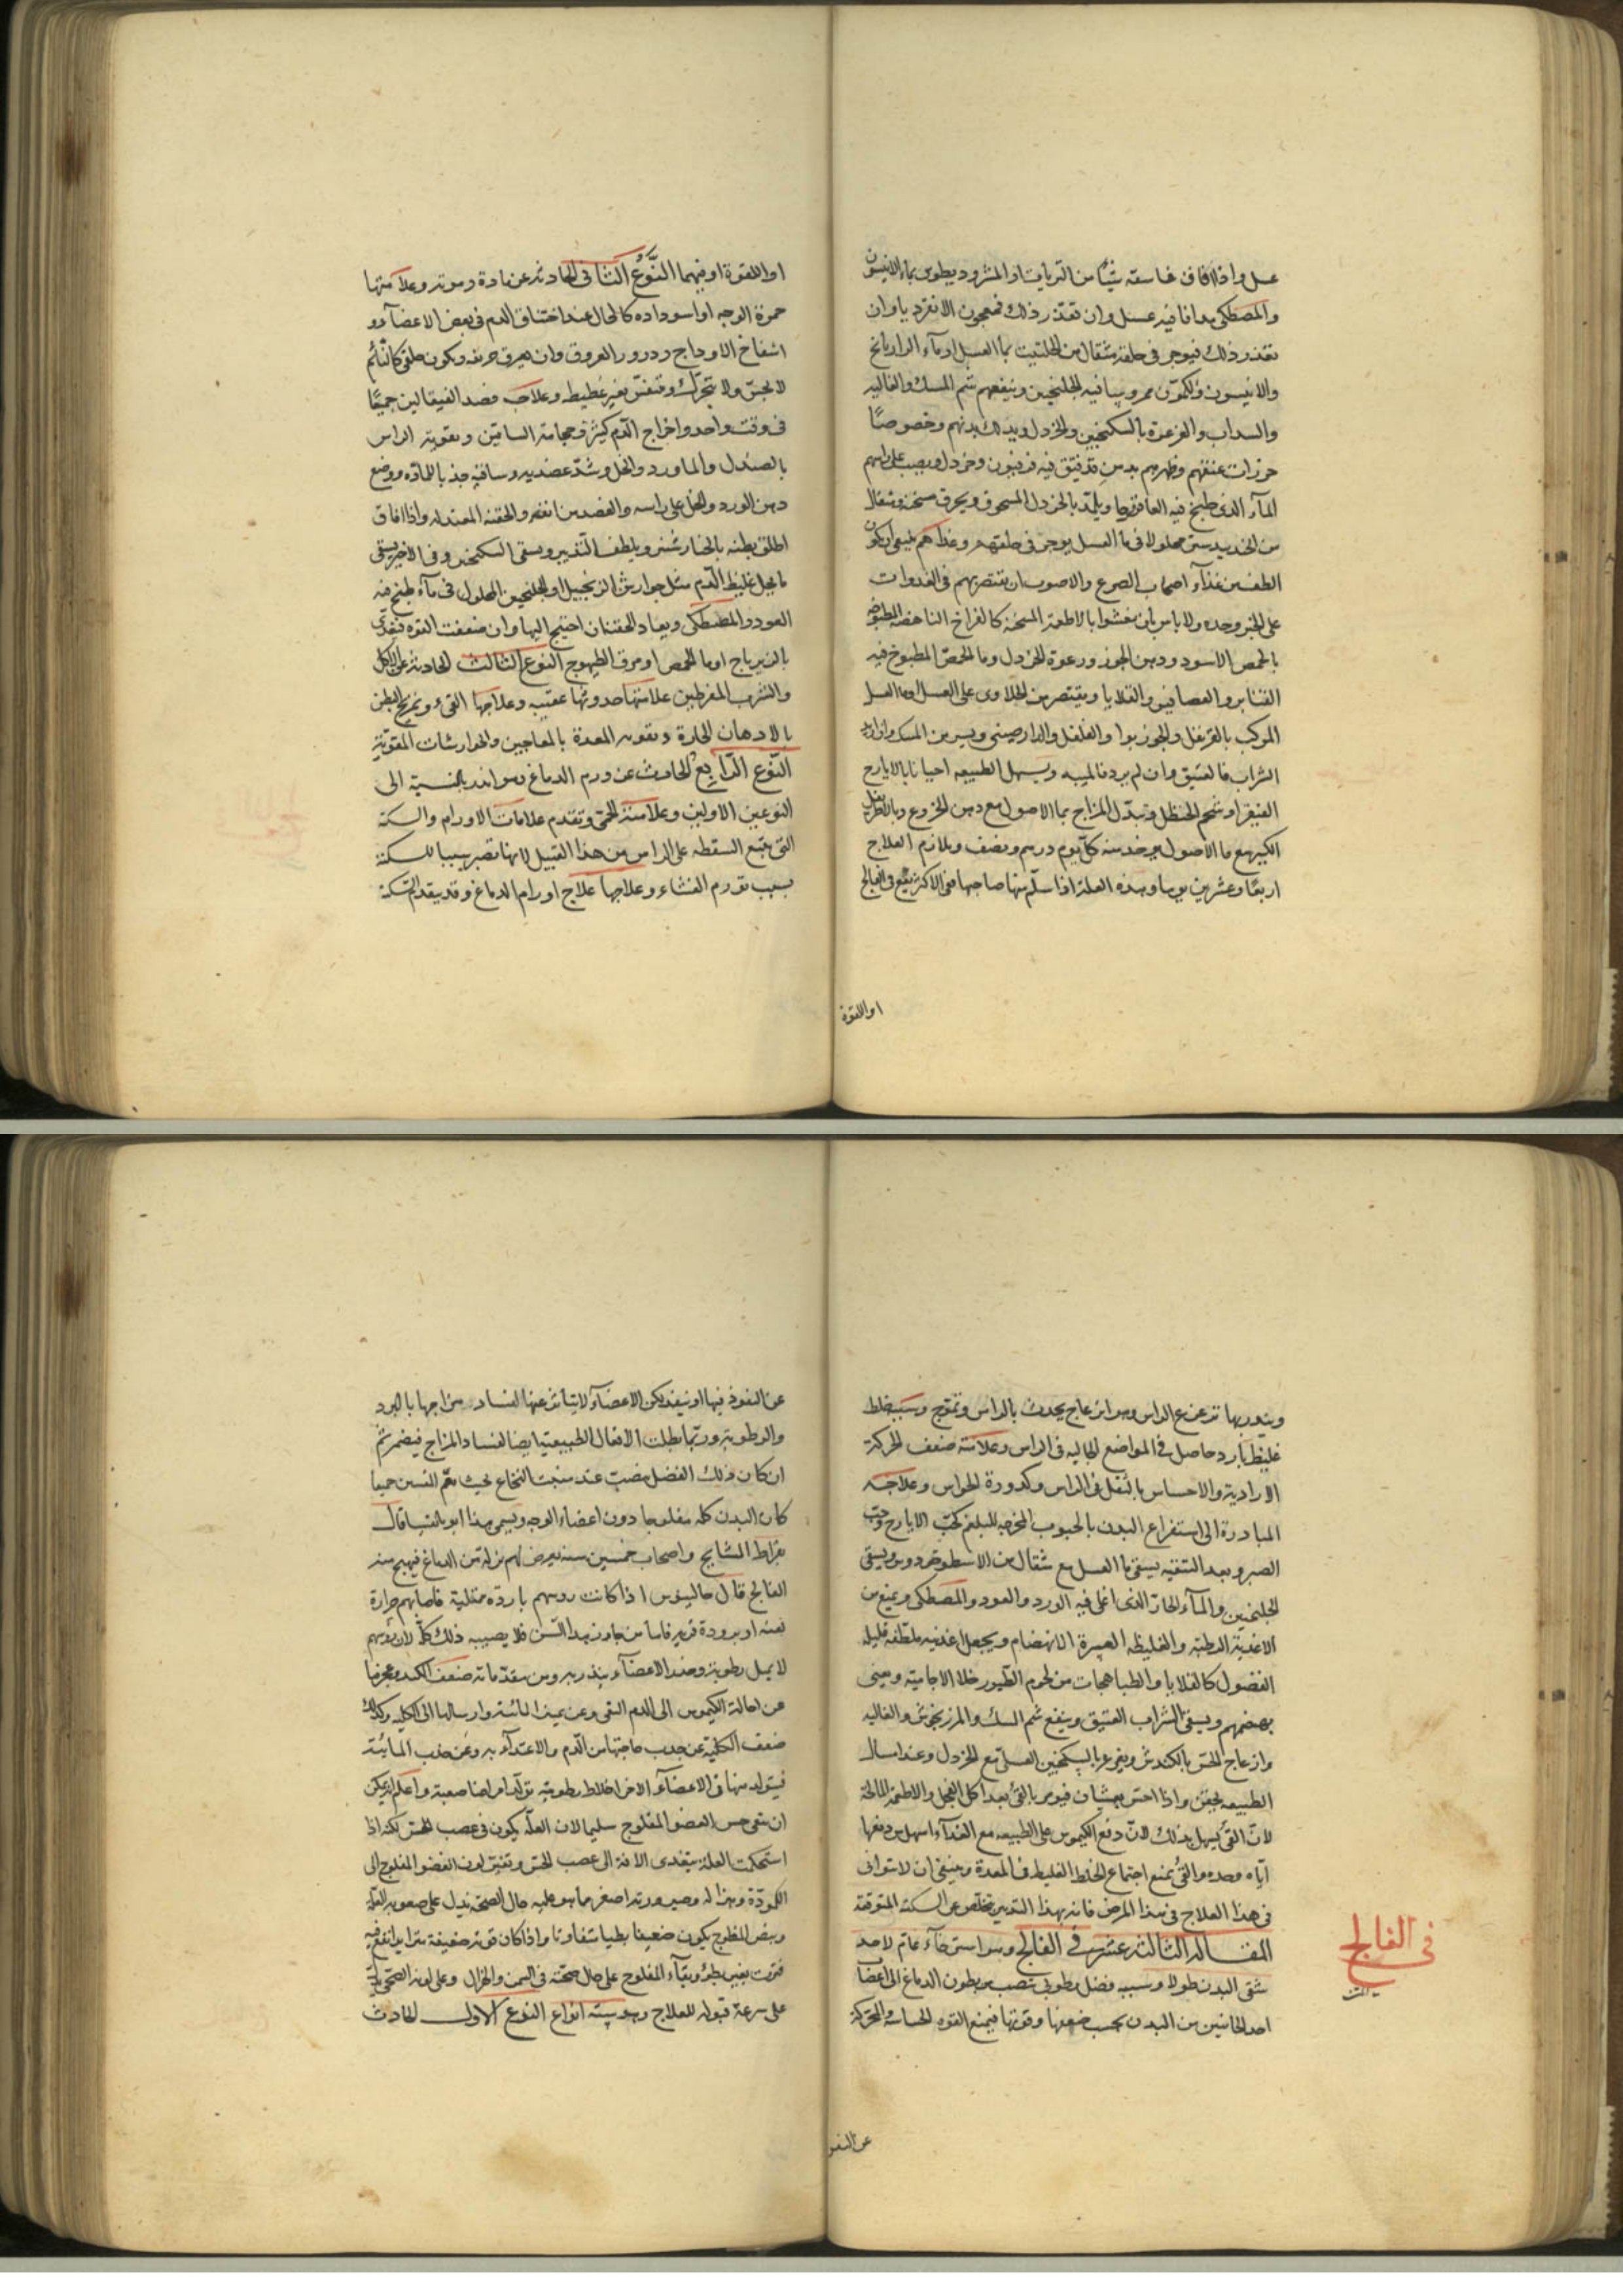 عسل واذا افاق فاسقه شيئا من الترياق او المثروديطوس بماء الانيسون
والمصطكى مدافا فيه عسل وان تعذر ذلك فمعجون الانقرديا وان
تعذر ذلك فيوجر فى حلقه مثقال من الحلتيت بماء العسل او ماء الرازيانج
والانيسون والكمون ممروسا فيه الجلنجبين وينفعهم شم المسك والغاليه
والسداب والغرغرة بالسكنجبين والخردل ويدلك بدنهم وخصوصًا
خرزات عنقهم وظهرهم بدهن قد فتق فيه فربيون وخردل ويصب على راسهم
المآء الذى طبخ فيه العاقرقرحا ويلمد بالخردل المسحوق ويحرق
من الجندبيدستر محلولا فى ماء العسل يوجر فى حلقهم وغذاهم ينبغى ان يكون
الطف من غذآء اصحاب الصرع والاصوب ان يقتصر بهم فى الغدوات
على الخبز وحده ولا باس بان يعشوا بالاطعمة المسخنة كالفراخ الناهضه المطبوخه
بالحمص الاسود ودهن الجوز ورغوة الخردل وماء الحمص المطبوخ فيه
القنابر والعصافير والقلايا ويقتصر من الحلاوى على العسل او ماء العسل
المركب بالقرنفل والجوزبوا والفلفل والدارصينى ويسير من المسك وان اريد
الشراب فالعتيق وان لم يرد فالميبه ويسهل الطبيعه احيانا بالايارج
الفيقرا وشحم الحنظل وتبدل المزاج بماء الاصول مع دهن الخروع وبالاطريفل
الكبير مع ماء الاصول يوخذ منه كل يوم درهم ونصف ويلازم العلاج
اربعًا وعشرين يوما وهذه العلة اذا سلم منها صاحبها فهى الاكثر يقع فى الفالج
او اللقوة
او اللقوة او فيهما النوع الثانى الحادثه عن مادة دموية وعلامتها
حمرة الوجه او اسوداده كالحال عند اختناق الدم فى بعض الاعضآء و
انتفاخ الاوداج ودرور العروق وان يعرق جبينه ويكون ملقى كالنائم
لا يحس ولا يتحرك ويتنفس بغير غطيط وعلاجه فصد القيفالين جميعًا
فى وقت واحد واخراج الدم كثيرة وحجامة الساقين وتقوية الراس
بالصندل والماورد والخل وشد عضديه وساقيه جذبا للمادة ووضع
دهن الورد والخل على راسه والفصد من انفه والحقنه المعتدله واذا افاق
اطلق بطنه بالخيارشنبر ويلطف التدبير ويسقى السكنجبين وفى الاخير يسقى
ما يحل غليظ الدم مثل جوارش الزنجبيل او الجلنجبين المحلول فى مآء طبخ فيه
العود والمصطكى ويعاد الحقنة ان احتيج اليها وان ضعفت القوه فيغذى
بالزيرباج او ماء الحمص او مرق الطيهوج النوع الثالث الحادثه عن الاكل
والشرب المفرطين علامتها حدوثها عقيبه وعلاجها القىء وتمريخ البطن
بالادهان الحارة وتقويه المعدة بالمعاجين والجوارشات المقوية
النوع الرابع الحادث عن ورم الدماغ وهو اندر بالنسبة الى
النوعين الاولين وعلامته الحمى وتقدم علامات الاورام والسكتة
التى يتبع السقطه على الراس من هذا القبيل لانها تصير سببا للسكتة
بسبب تورم الغشاء وعلاجها علاج اورام الدماغ وقد يتقدم السكتة
غليظ بارد حاصل فى المواضع الخاليه فى الراس وعلامته ضعف الحركة
الارادية والاحساس بالثقل فى الراس وكدورة الحواس وعلاجه
المبادرة الى استفراغ البدن بالحبوب المخرجه للبلغم كحب الايارج وحب
الصبر وبعد التنقيه يسقى ماء العسل مع مثقال من الاسطوخودوس ويسقى
الجلنجبين والمآء الحار الذى اغلى فيه الورد والعود والمصطكى ويمنع من
الاغذية الرطبة والغليظه العسرة الانهضام ويجعل اغذيه ملطفه قليلة
الفضول كالقلايا والطباهجات من لحوم الطيور خلا الاجامية ويعنى
بهضمهم ويسقى الشراب العتيق وينفع شم المسك والمرزنجوش والغاليه
وازعاج الحس بالكندش ويغرغر بالسكنجبين العسلى مع الخردل وعند اسهال
الطبيعه بحقن واذا احس فيومر بالقىء بعد اكل الفجل والاطعمة المالحة
لان القىء يسهل بذلك لان دفع الكيموس على الطبيعه مع الغذآء اسهل من دفعها
اياه وحده والقىء يمنع اجتماع الخلط الغليظ فى المعدة وينبغى ان لا يتوانى
فى هذا العلاج فى هذا المرض فانه بهذا التدبير يتخلص عن السكتة المتوقعة
المقالة الثالثة عشرة فى الفالج وهو استرخآء عام لاحد
شقى البدن طولا وسببه فضل رطوبى ينصب من بطون الدماغ الى اعضآء
احد الجانبين من البدن بحسب ضعفها وقوتها فيمنع القوه الحساسة والمحركة
فى الفالج
عن النفو
عن النفوذ فيها او ينفذ لكن الاعضآء لا يتاثر عنها لفساد مزاجها بالبرد
والرطوبة وربما بطلت الافعال الطبيعية ايضا لفساد المزاج فيضمر ثم
ان كان ذلك الفضل ينصب عند منبت النخاع بحيث يعم القسمين جميعا
كان البدن كله مفلوجا دون اعضاء الوجه ويسمى هذا ابو بلقسيا قال
بقراط المشايخ واصحاب خمسين سنه يعرض لهم نزلة من الدماغ فيهيج منه
الفالج قال جالينوس اذا كانت روسهم باردة ممتلية فاصابهم حرارة
لا يميل رطوبة وجذب الاعضآء ومن مقدماته ضعف الكبد وعجزها
عن احالة الكيموس الى الدم النقى وعن تمييز المائية وارسالها الى الكليه وكذلك
ضعف الكلية عن جذب حاجتها من الدم والاغتذآء به وعن جذب المائية
فيتولد منها فى الاعضآء الاخر اخلاط رطوبية تولد امراضا صعبة واعلم انه يمكن
ان يبقى حس العضو المفلوج سليما لان العلة يكون فى عصب الحركة لكنه اذا
استحكمت العلة يتعدى الافة الى عصب الحس وتغير لون العضو المفلوج الى
الكمودة وهزاله وصيرورته اصغر مما هو عليه حال الصحة تدل على صعوبة العلة
ونبض المفلوج يكون ضعيفا بطيا متفاوتا واذا كان قوته ضعيفة
فترت بغير بطؤ وبقآء المفلوج على حال صحته فى السمن والهزال وعلى لونه الصحى يدل
على سرعة قبوله للعلاج وهو ستة انواع النوع الاول الحادث